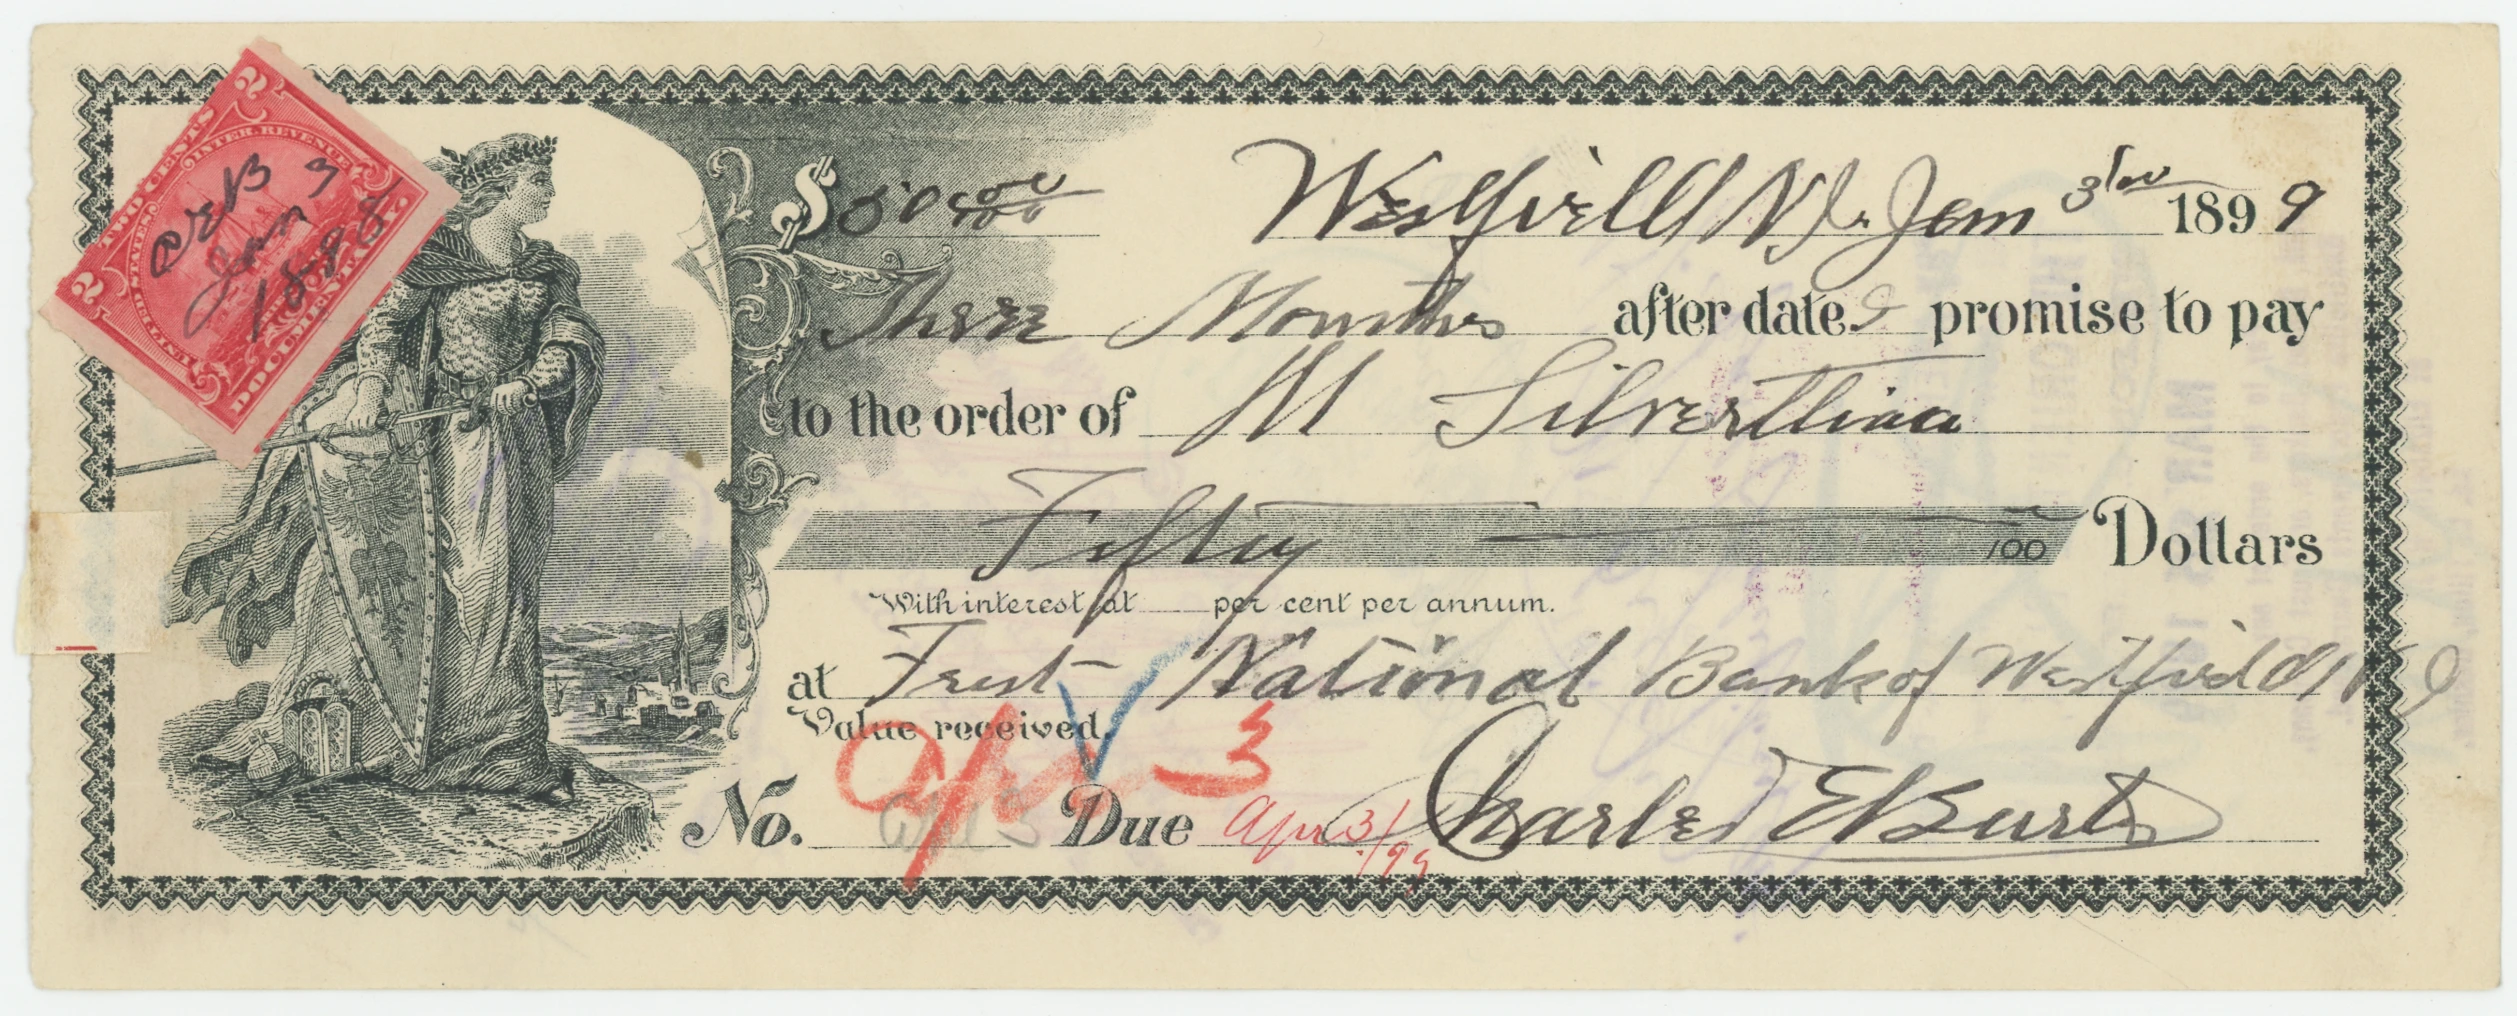 2 TWO CENTS 2
INTER. REVENUE
UNITED STATES
DOCUMENTARY.
CEB
Jan 3
1898
$ 50 00/100 Westfield N.J. Jan 3 1899
Three Months after date I promise to pay
to the order of M
Fifty 100 Dollars
With interest at per cent per annum.
at First National Bank of Westfield NJ
Value received.
Apr 3
No. Due Apr 3/99 Charles E Burt